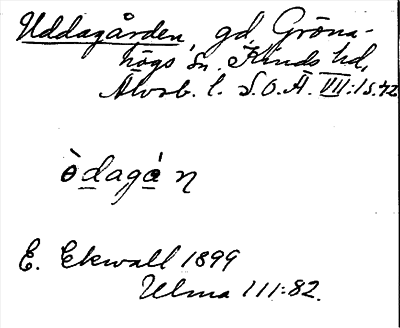 Uddagården, gd, Gröna-
högs sn. Kinds hd,
Älvsb. l. S.O.Ä. VII:1 s. 42
ò̱dagȧ̱ n
E. Ekwall 1899
Ulma 111:82.